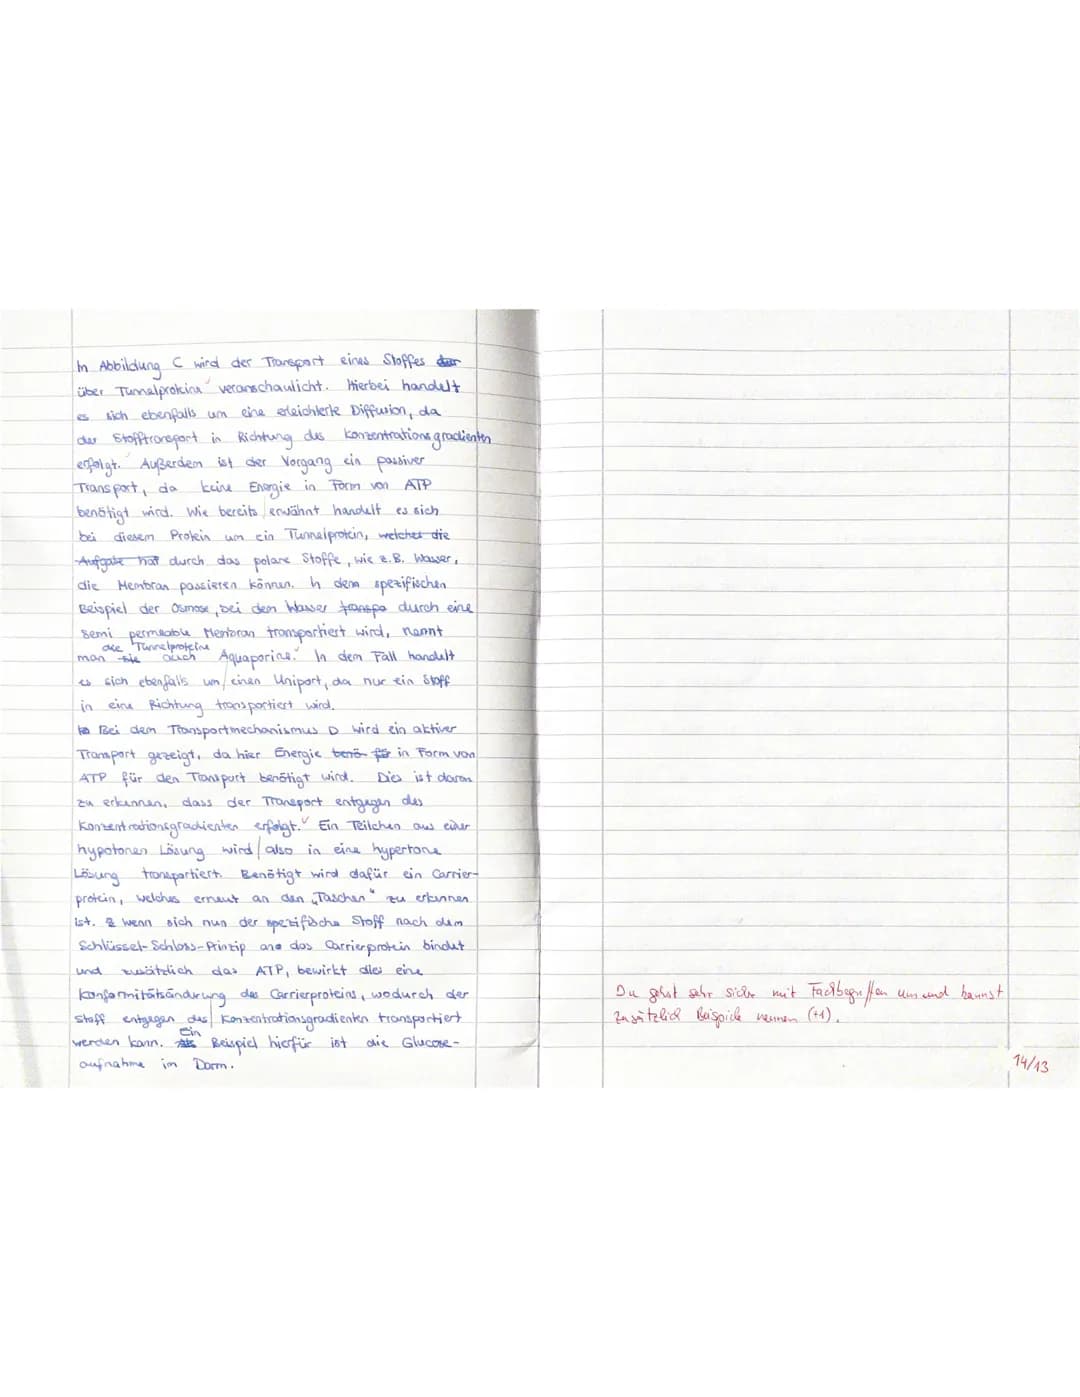 In Abbildung C wird der Transport eines Stoffes der
über Tunnelproteine veranschaulicht. Hierbei handelt
es sich ebenfalls um eine erleichterte Diffusion, da
der Stofftransport in Richtung des Konzentrationsgradienten
erfolgt. Außerdem ist der Vorgang ein passiver
Transport, da keine Energie in Form von ATP
benötigt wird. Wie bereits erwähnt handelt es sich
bei diesem Protein um ein Tunnelprotein, welches die
Aufgabe hat durch das polare Stoffe, wie z.B. Wasser,
die Membran passieren können. In dem spezifischen
Beispiel der Osmose, bei dem Wasser transpo durch eine
semi permeable Membran transportiert wird, nennt
die Tunnelproteine
man sie auch Aquaporine. In dem Fall handelt
es sich ebenfalls um einen Uniport, da nur ein Stoff
in eine Richtung transportiert wird.
Bei dem Transportmechanismus D wird ein aktiver
Transport gezeigt, da hier Energie benö für in Form von
ATP für den Transport benötigt wird. Dies ist daran
zu erkennen, dass der Transport entgegen des
Konzentrationsgradienten erfolgt. Ein Teilchen aus einer
hypotonen Lösung wird also in eine hypertone
Lösung transportiert. Benötigt wird dafür ein Carrier-
protein, welches erneut an den „Taschen" zu erkennen
ist. Wenn sich nun der spezifische Stoff nach dem
Schlüssel-Schloss-Prinzip ans das Carrierprotein bindet
und zusätzlich das ATP, bewirkt dies eine
Konformitätsänderung des Carrierproteins, wodurch der
Stoff entgegen des Konzentrationsgradienten transportiert
Ein
werden kann. Als Beispiel hierfür ist die Glucose-
aufnahme im Darm.
Du gehst sehr sicher mit Fachbegriffen um und kannst
zusätzlich Beispiele nennen (+1).
14/13